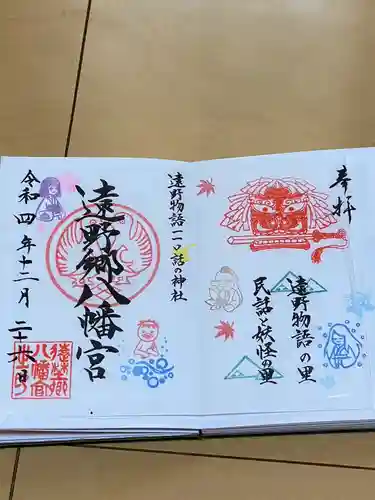 奉拝
遠野物語の里
民話と妖怪の里
遠野物語一一〇話の神社
遠野郷八幡宮
令和四年十二月二十八日
遠野郷
八幡宮